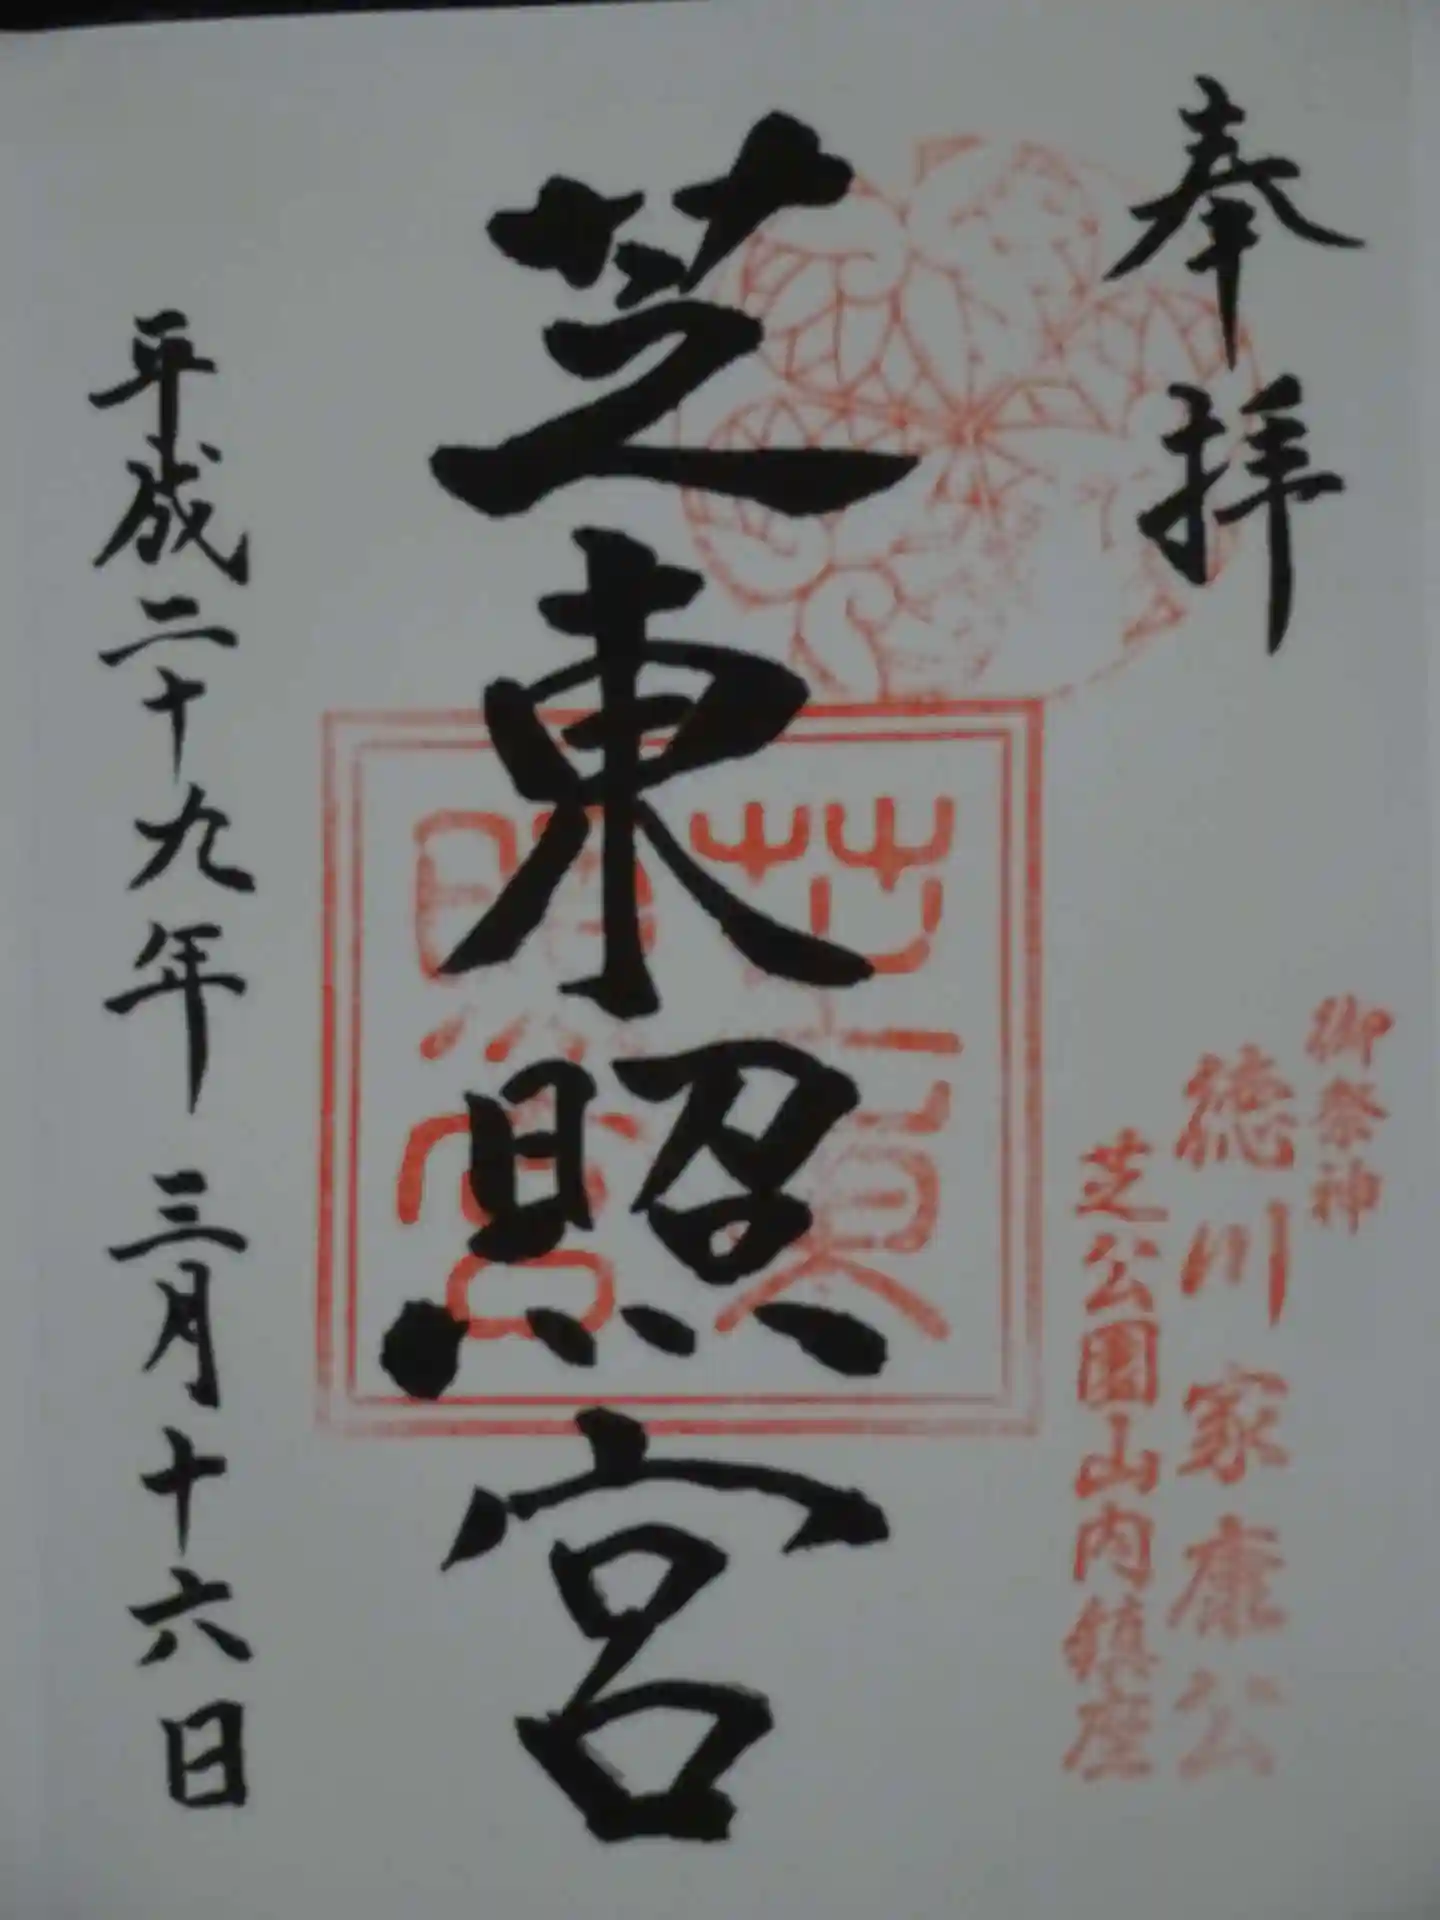 奉拝
御祭神
徳川家康公
芝公園山内鎮座
芝東照宮
芝東照宮
平成二十九年三月十六日